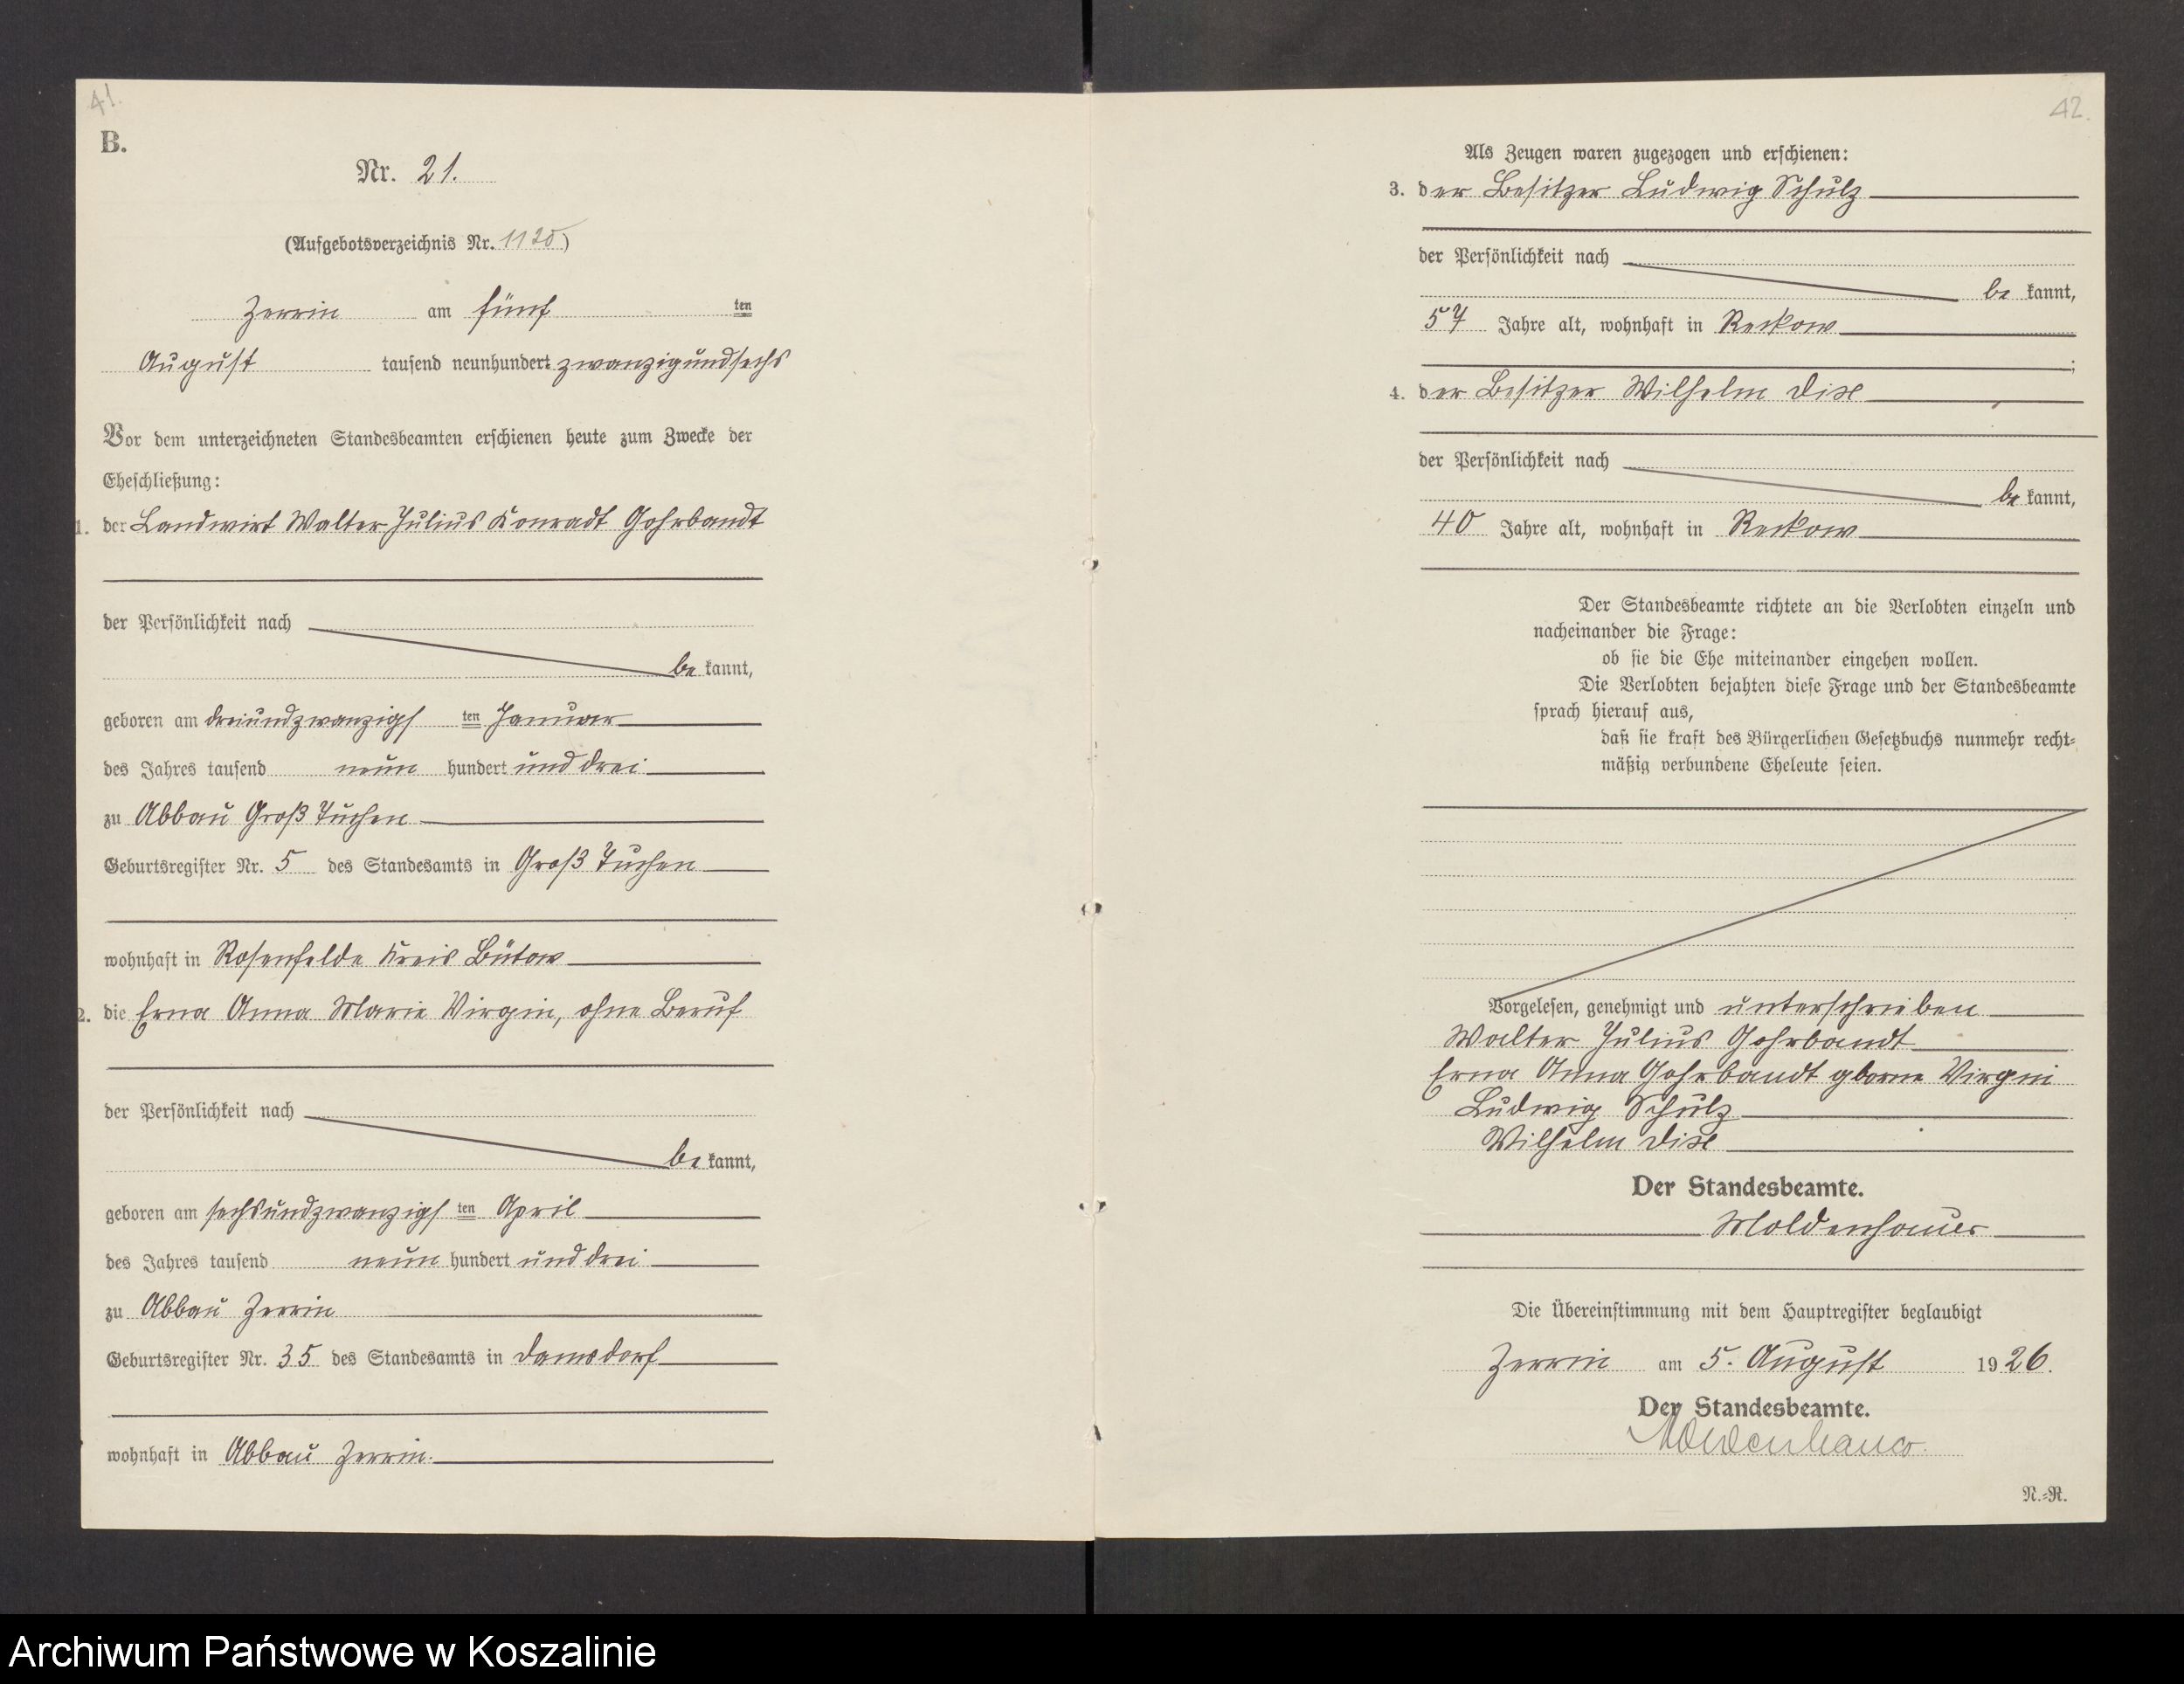 41.
B.
Nr. 21.
(Aufgebotsverzeichnis Nr. 1120)
Zerrin am fünf ten
August tausend neunhundert zwanzigundsechs
Vor dem unterzeichneten Standesbeamten erschienen heute zum Zwecke der
Eheschließung:
1. der Landwirt Walter Julius Konradt Gohrbandt
der Persönlichkeit nach
be kannt,
geboren am dreiundzwanzigs ten Januar
des Jahres tausend neun hundert und drei
zu Abbau Groß Tuchen
Geburtsregister Nr. 5 des Standesamts in Groß Tuchen
wohnhaft in Rosenfelde Kreis Bütow
2. die Erna Anna Marie Virgin, ohne Beruf
der Persönlichkeit nach
be kannt,
geboren am sechsundzwanzigs ten April
des Jahres tausend neun hundert und drei
zu Abbau Zerrin
Geburtsregister Nr. 35 des Standesamts in Damsdorf
wohnhaft in Abbau Zerrin.
42.
Als Zeugen waren zugezogen und erschienen:
3. der Besitzer Ludwig Schulz
der Persönlichkeit nach
be kannt,
57 Jahre alt, wohnhaft in Reckow
;
4. der Besitzer Wilhelm
der Persönlichkeit nach
be kannt,
40 Jahre alt, wohnhaft in Reckow
Der Standesbeamte richtete an die Verlobten einzeln und
nacheinander die Frage:
ob sie die Ehe miteinander eingehen wollen.
Die Verlobten bejahten diese Frage und der Standesbeamte
sprach hierauf aus,
daß sie kraft des Bürgerlichen Gesetzbuchs nunmehr recht-
mäßig verbundene Eheleute seien.
Vorgelesen, genehmigt und unterschrieben
Walter Julius Gohrbandt
Erna Anna Gohrbandt gborne Virgin
Ludwig Schulz
Wilhelm
Der Standesbeamte.
Moldenhauer
Die Übereinstimmung mit dem Hauptregister beglaubigt
Zerrin am 5. August 1926.
Der Standesbeamte.
Moldenhauer.
N.-R.
Archiwum Państwowe w Koszalinie